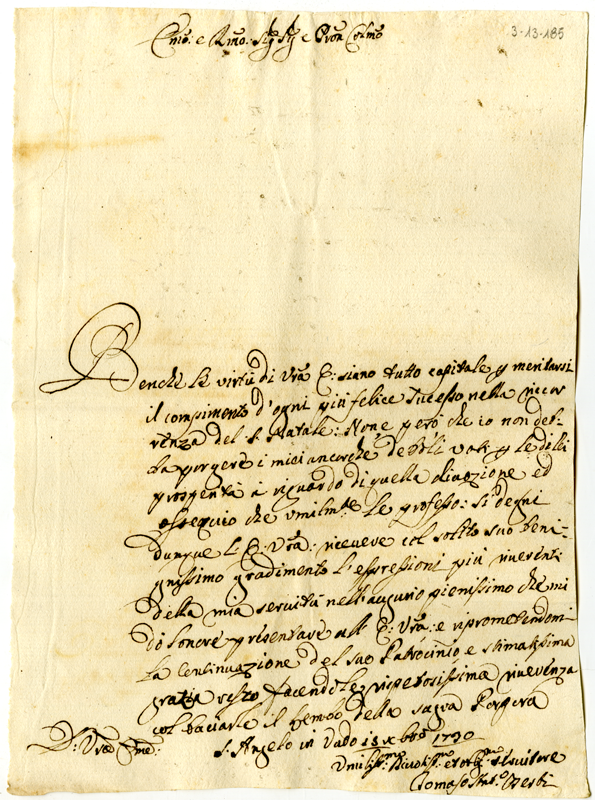 3-13-185
Emo: e Rmo: Sig Sig e Pron Colmo
Benche le virtù di Vra E: siano tutto capitale p meritarsi
il compimento d'ogni più felice sucesso nella ricor
renza del S. Natale: Non e però che io non deb-
ba porgere i miei ancorche deboli voti p le di lei
prosperità à riguardo di quella divozione ed
ossequio che umilmte le professo: Si degni
dunque l'E: Vra: ricevere col solito suo beni-
gnissimo gradimento l'espressioni più riverenti
della mia servitù nell'augurio pienissimo che mi
dò l'onore presentare all' E: Vra: e ripromettendomi
la continuazione del suo Patrocinio e stimatissima
grazia resto facendole rispettosissima riverenza
col baciarle il lembo della sagra Porpora
D: Vra Eme:
S. Angelo in Vado 18 Xbre 1730
Umiliss:mo Divotiss:mo et obg:mo Servitore
Tomaso Ant:o